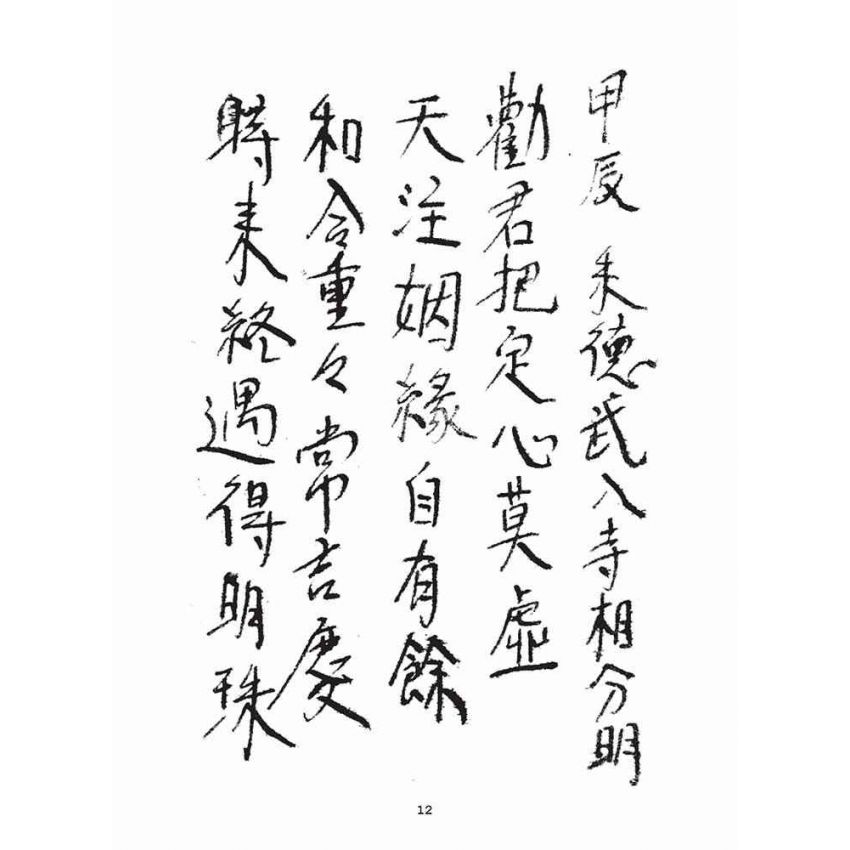 甲辰 朱德武入寺相分明
勸君把定心莫虛
天注姻緣自有餘
和合重々常吉慶
時來終遇得明珠
12